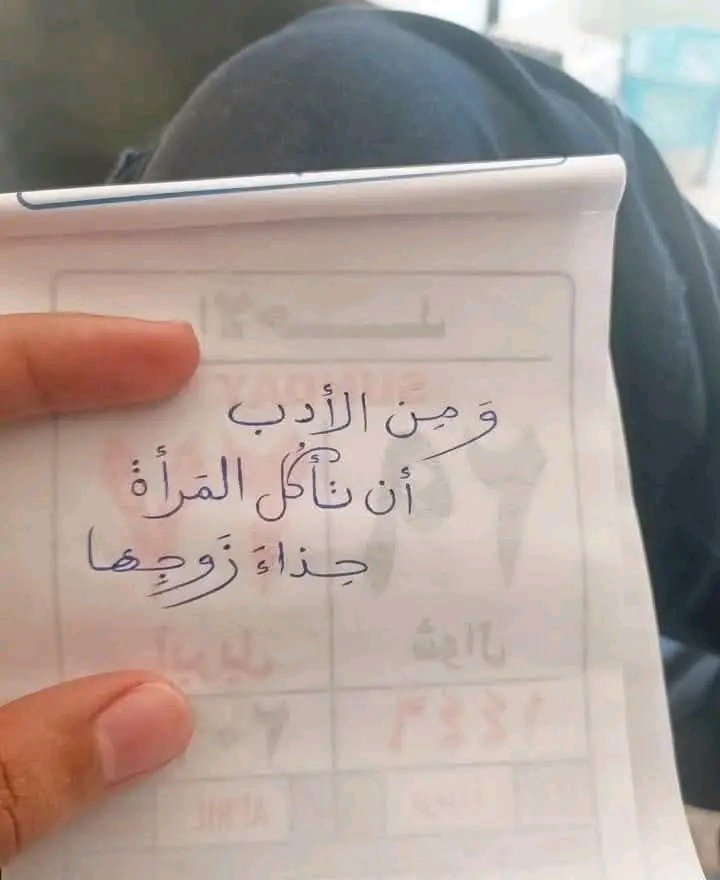 وَ مِن الأدب
أن تأكُل المَرأة
حِذاءَ زَوجِها